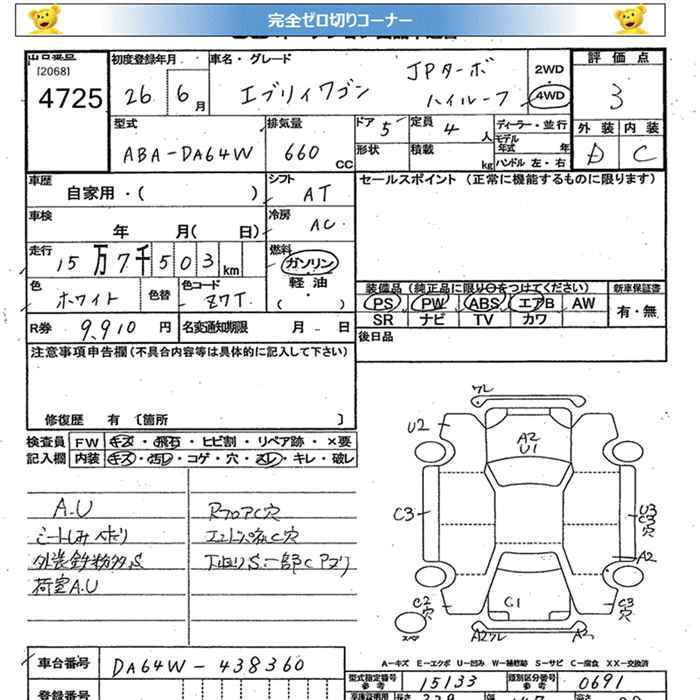 完全ゼロ切りコーナー
出品番号
[2068]
4725
初度登録年月
26 6月
車名・グレード
エブリィワゴン
JPターボ
ハイルーフ
2WD
4WD
評価点
3
外装 内装
D C
型式
ABA-DA64W
排気量
660 CC
ドア 5
定員 4 人
ディーラー・並行
モデル年式 年
形状
積載 kg
ハンドル 左・右
車歴
自家用・( )
シフト
AT
セールスポイント (正常に機能するものに限ります)
車検
年 月( 日)
冷房
AC
走行
15万7千503km
燃料
ガソリン
軽油
( )
色
ホワイト
色替
色コード
Z7T
装備品(純正品に限り○をつけてください)
新車保証書
PS PW ABS エアB AW
有・無
SR ナビ TV カワ
R券 9,910円
名変通知期限 月 日
後日品
注意事項申告欄(不具合内容等は具体的に記入して下さい)
修復歴 有 〔箇所 〕
検査員 FW キズ・飛石・ヒビ割・リペア跡・×要
記入欄 内装 キズ・汚レ・コゲ・穴・スレ・キレ・破レ
A.U
シートしみ ヘタリ
外装鉄粉多S
荷室A.U
RフロアC穴
下廻りS一部C
ワレ
U2
A2
U1
C3
U3
C3
穴
A2
C2
穴
C1
C3
穴
スペア
A2ワレ
A2
A-キズ E-エクボ U-凹み W-補修跡 S-サビ C-腐食 XX-交換済
車台番号
DA64W-438360
型式指定番号
参考
15133
類別区分番号
参考
0691
登録番号
長さ
幅
高さ